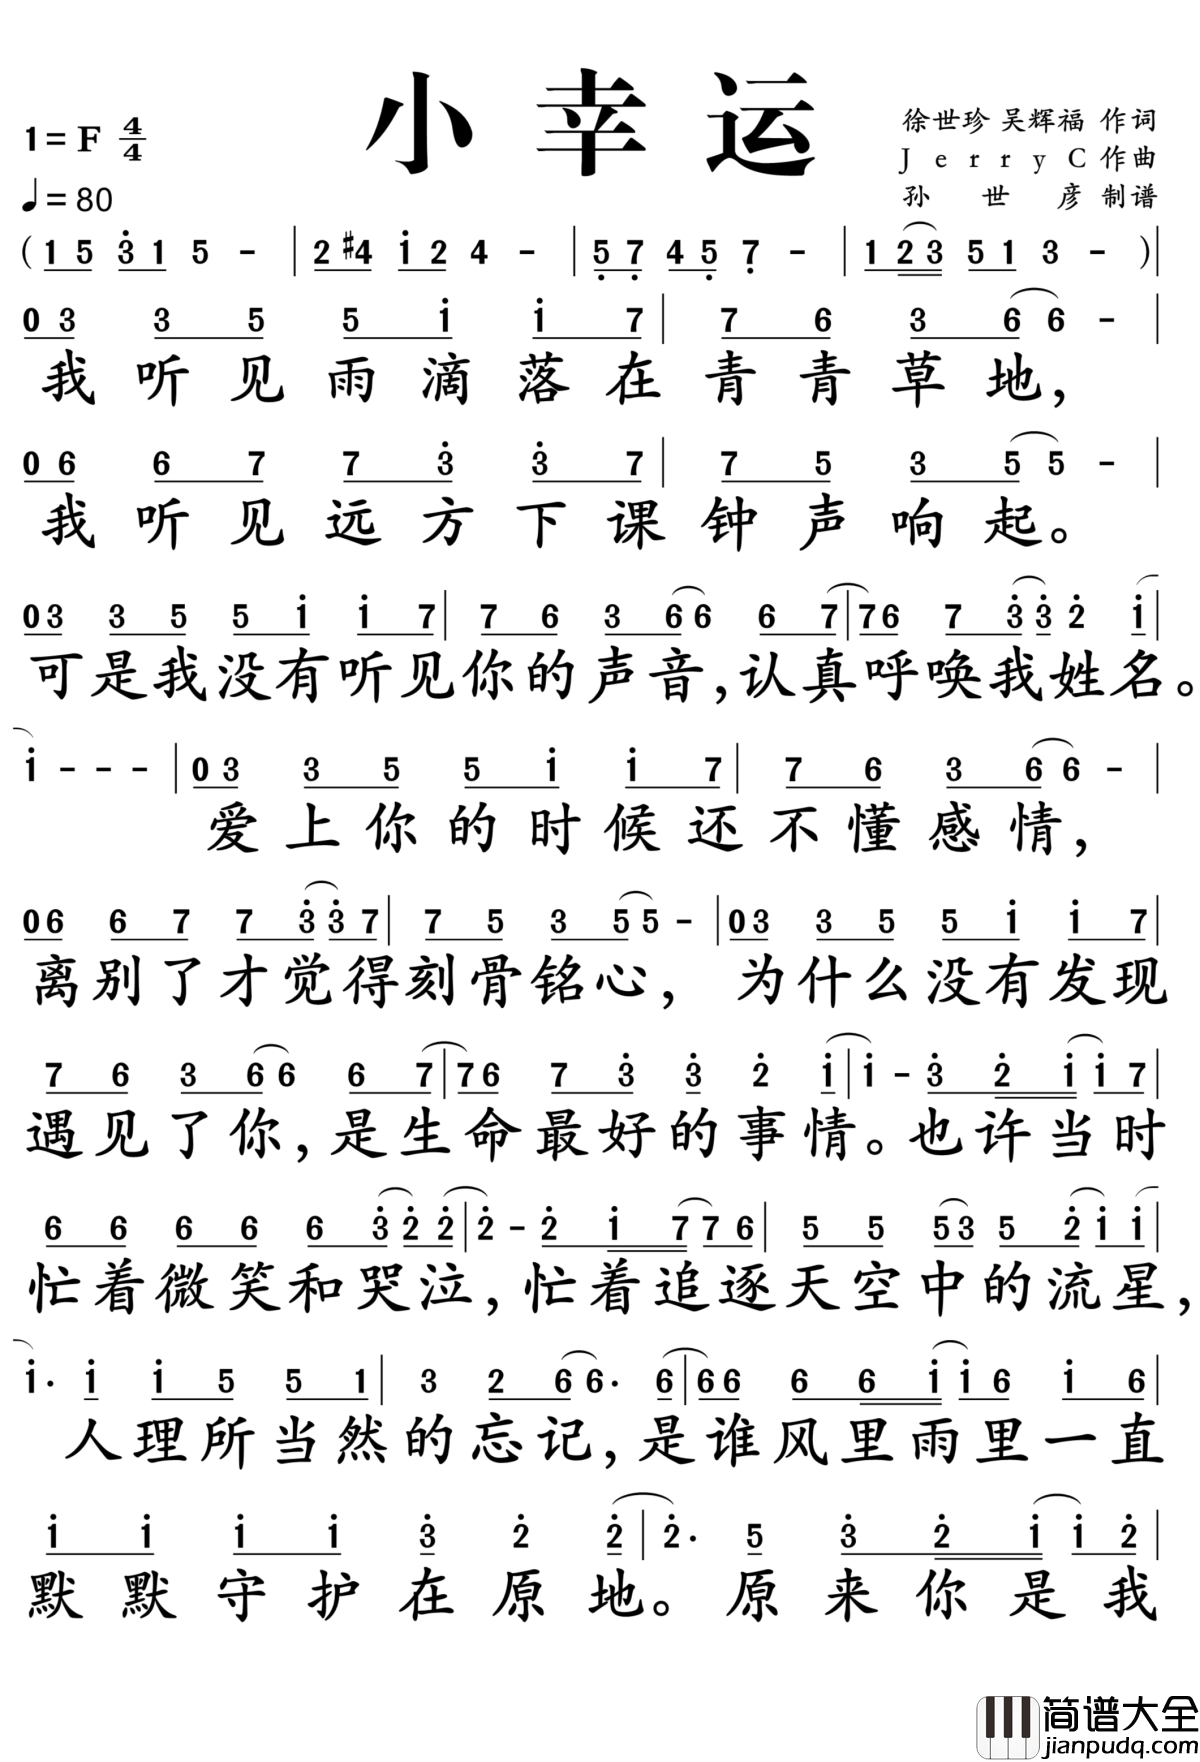 小幸运
1=F 4/4
♩=80
徐世珍 吴辉福 作词
JerryC 作曲
孙世彦 制谱
( 1 5 3̇ 1 5 - | 2 #4 i 2 4 - | 5̣ 7̣ 4 5̣ 7̣ - | 1 2 3 5 1 3 - ) |
0 3 3 5 5 i i 7 | 7 6 3 6 6 - |
我听见雨滴落在青青草地,
0 6 6 7 7 3̇ 3̇ 7 | 7 5 3 5 5 - |
我听见远方下课钟声响起。
0 3 3 5 5 i i 7 | 7 6 3 6 6 6 7 | 7 6 7 3̇ 3̇ 2̇ i |
可是我没有听见你的声音,认真呼唤我姓名。
i - - - | 0 3 3 5 5 i i 7 | 7 6 3 6 6 - |
爱上你的时候还不懂感情,
0 6 6 7 7 3̇ 3̇ 7 | 7 5 3 5 5 - | 0 3 3 5 5 i i 7 |
离别了才觉得刻骨铭心,为什么没有发现
7 6 3 6 6 6 7 | 7 6 7 3̇ 3̇ 2̇ i | i - 3̇ 2̇ i i 7 |
遇见了你,是生命最好的事情。也许当时
6 6 6 6 6 3̇ 2̇ 2̇ | 2̇ - 2̇ i 7 7 6 | 5 5 5 3 5 2̇ i i |
忙着微笑和哭泣,忙着追逐天空中的流星,
i· i i 5 5 1 | 3 2 6 6· 6 | 6 6 6 6 i i 6 i 6 |
人理所当然的忘记,是谁风里雨里一直
i i i i 3̇ 2̇ 2̇ | 2̇· 5 3̇ 2̇ i i 2̇ |
默默守护在原地。原来你是我
简谱大全
jianpudq.com